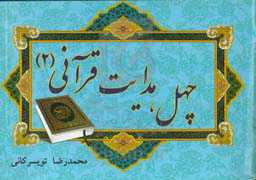 چهل هدایت قرآنی (۲)
محمدرضا تویسرکانی